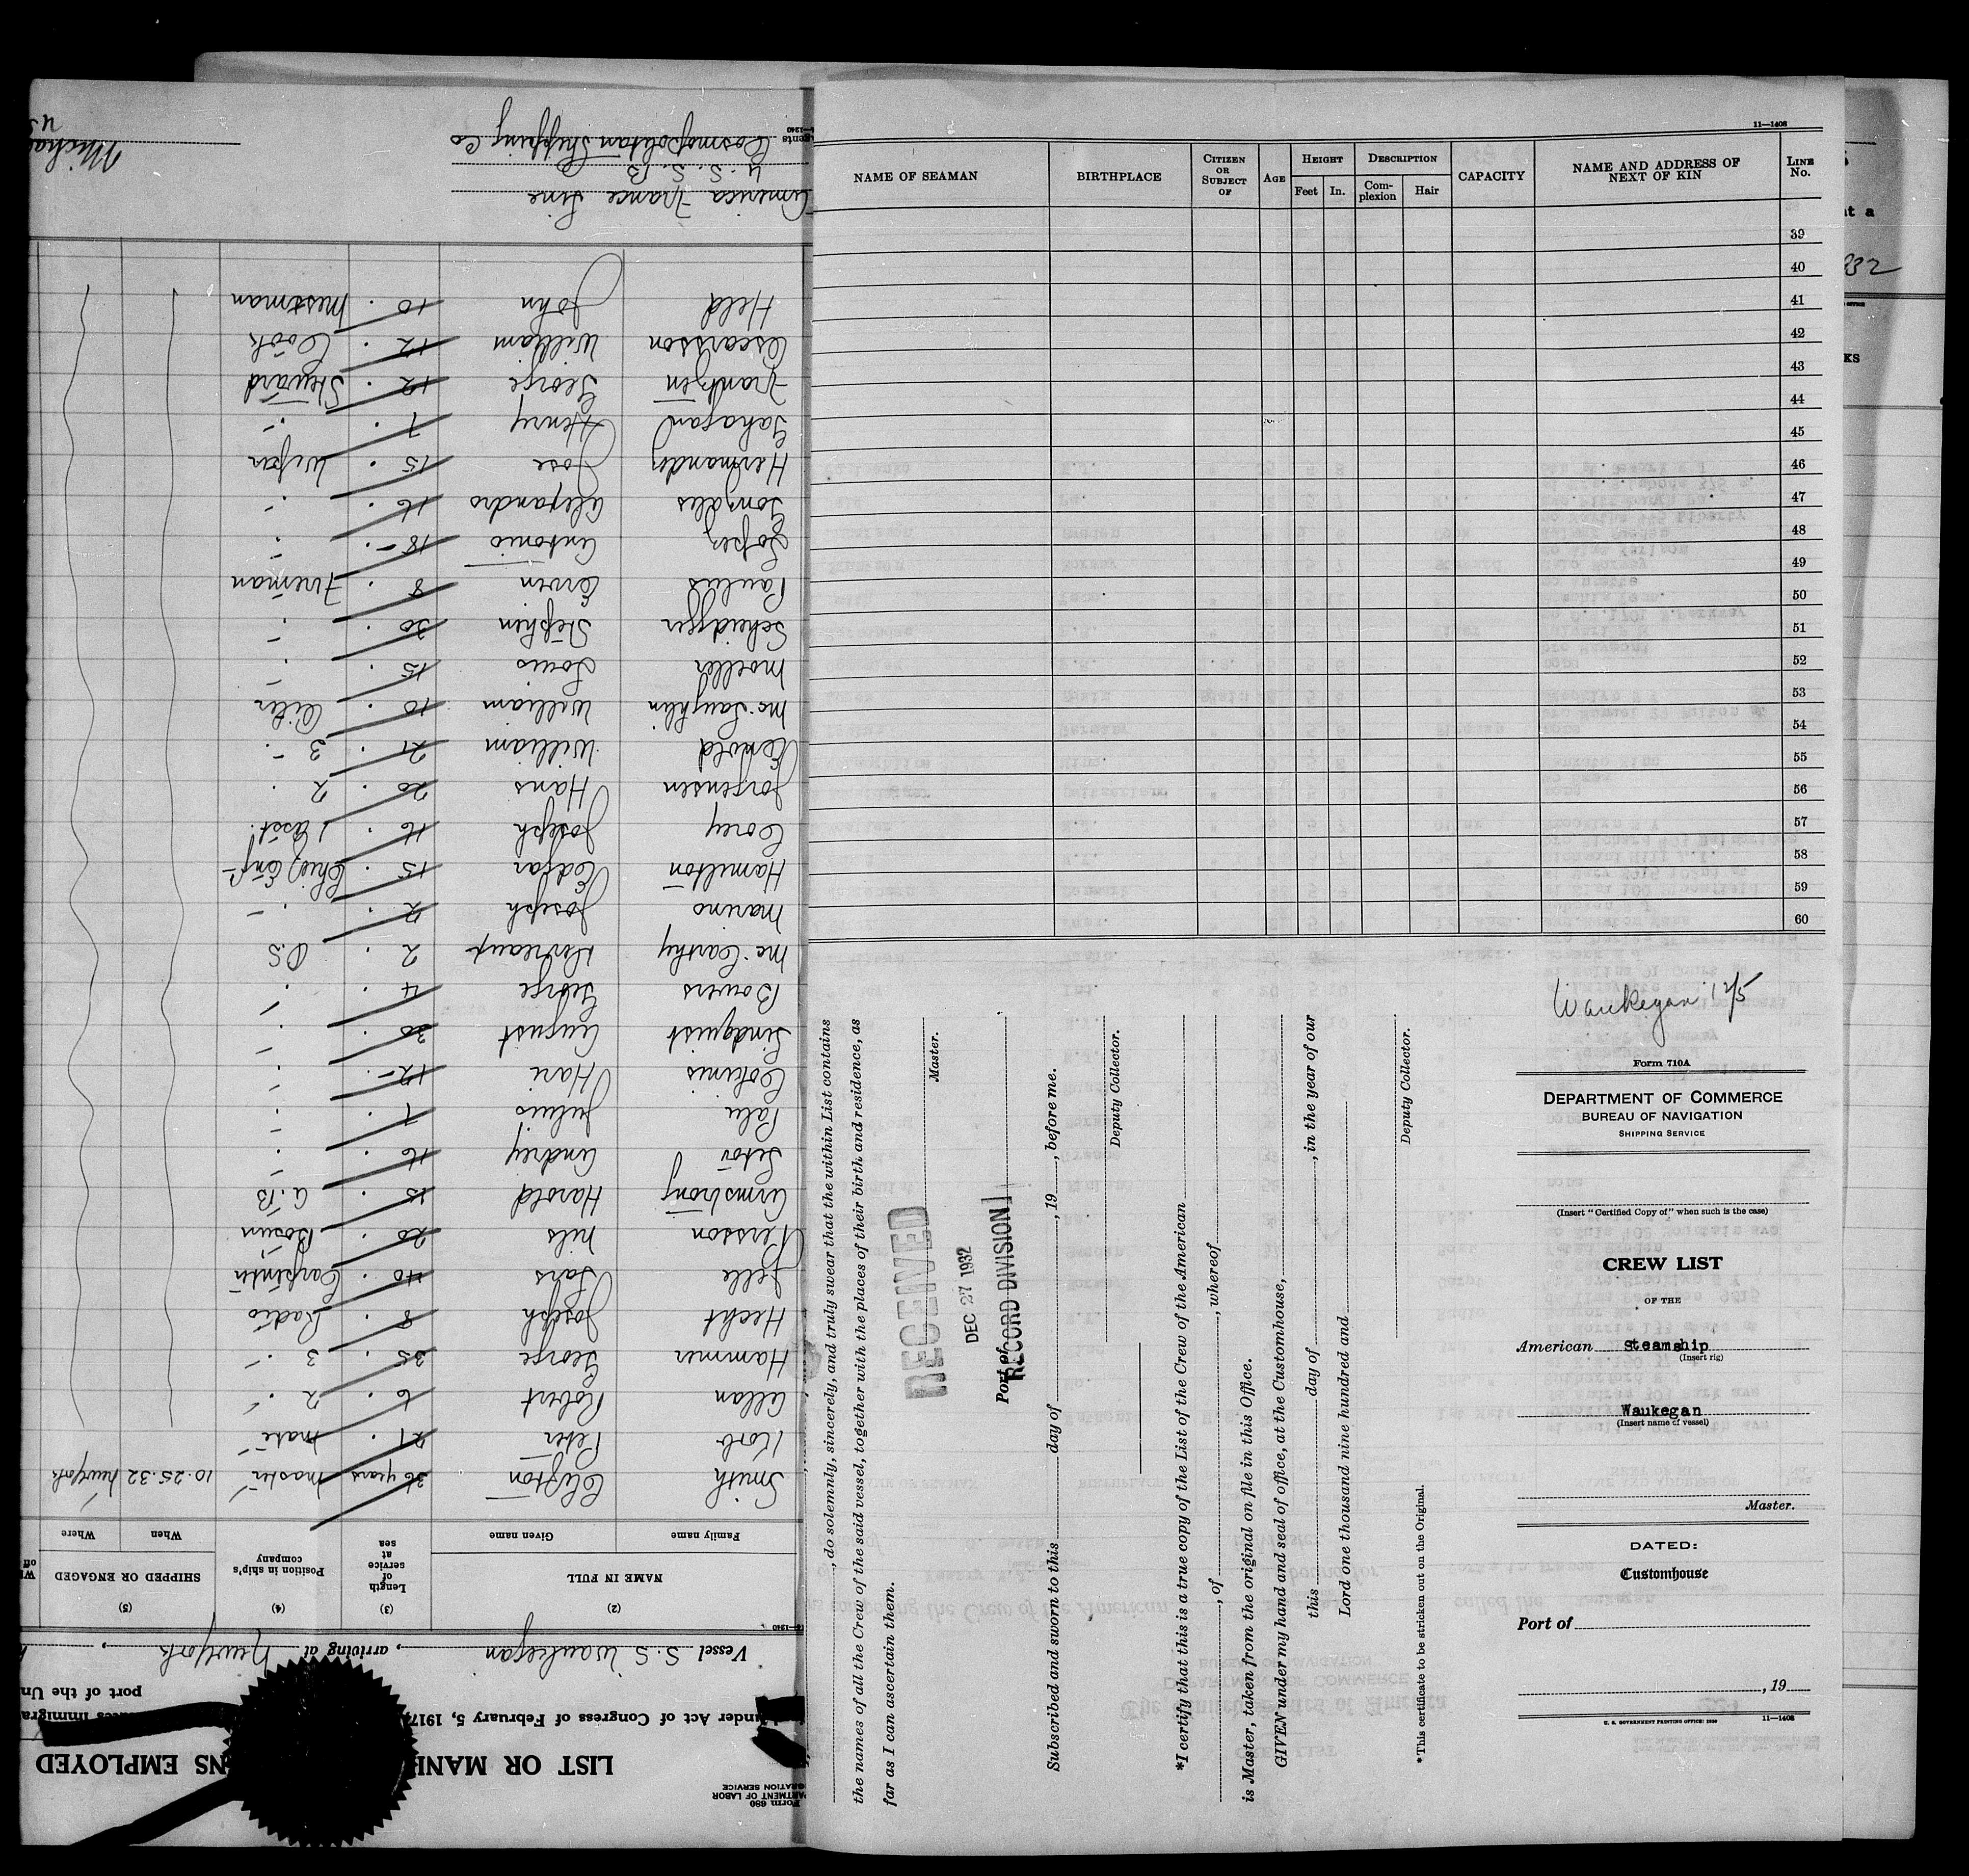 11—1408
NAME OF SEAMAN BIRTHPLACE CITIZEN OR SUBJECT OF AGE HEIGHT Feet In. DESCRIPTION Complexion Hair CAPACITY NAME AND ADDRESS OF NEXT OF KIN LINE No.
39
40
41
42
43
44
45
46
47
48
49
50
51
52
53
54
55
56
57
58
59
60
, do solemnly, sincerely, and truly swear that the within List contains
the names of all the Crew of the said vessel, together with the places of their birth and residence, as
far as I can ascertain them.
Master.
RECEIVED
DEC 27 1932
RECORD DIVISION
Port of
Subscribed and sworn to this day of , 19 , before me.
Deputy Collector.
*I certify that this is a true copy of the List of the Crew of the American
, of , whereof
is Master, taken from the original on file in this Office.
GIVEN under my hand and seal of office, at the Customhouse,
this day of , in the year of our
Lord one thousand nine hundred and
Deputy Collector.
*This certificate to be stricken out on the Original.
Waukegan 12/5
Form 710A
DEPARTMENT OF COMMERCE
BUREAU OF NAVIGATION
SHIPPING SERVICE
(Insert "Certified Copy of" when such is the case)
CREW LIST
OF THE
American Steamship
(Insert rig)
Waukegan
(Insert name of vessel)
Master.
DATED:
Customhouse
Port of
, 19
U. S. GOVERNMENT PRINTING OFFICE: 1930 11—1408
Form 680
LIST OR
NS EMPLOYED
under Act of Congress of February 5, 1917
port of the Un
Vessel S.S. Waukegan , arriving at New York
(2) (3) (4) (5)
NAME IN FULL Length of service at sea Position in ship's company SHIPPED OR ENGAGED
Family name Given name When Where
Smith Clifton 36 years Master 10.25.32 New York
Korb Peter 21 Mate
Allan Robert 6 2
Hammer George 35 3
Hecht Joseph 8 Radio
Jelle Lars 40 Carpenter
Persson Nils 20 Bosun
Armstrong Harold 15 A.B
Setov Andrey 16
Palu Julius 7
Cotunis Hari 12
Lindquist August 30
Bowers George 4
McCarthy 2 O.S
Marino Joseph 2
Hamilton Edgar 15 Chief Eng
Corey Joseph 16 1 Asst.
Jorgensen Hans 20 2
Arnold William 21 3
McLaughlin William 10 Oiler
Moeller Louis 15
Scheidegger Stephen 30
Paulus Erwin 8 Fireman
Lopez Antonio 18
Gonzales Alejandro 16
Hernandez Jose 15 Wiper
Gahagan Henry 7
Frantzen George 12 Steward
Oscarsson William 12 Cook
Held John 10 Messman
America France Line
U.S.S.B
Agents Cosmopolitan Shipping Co